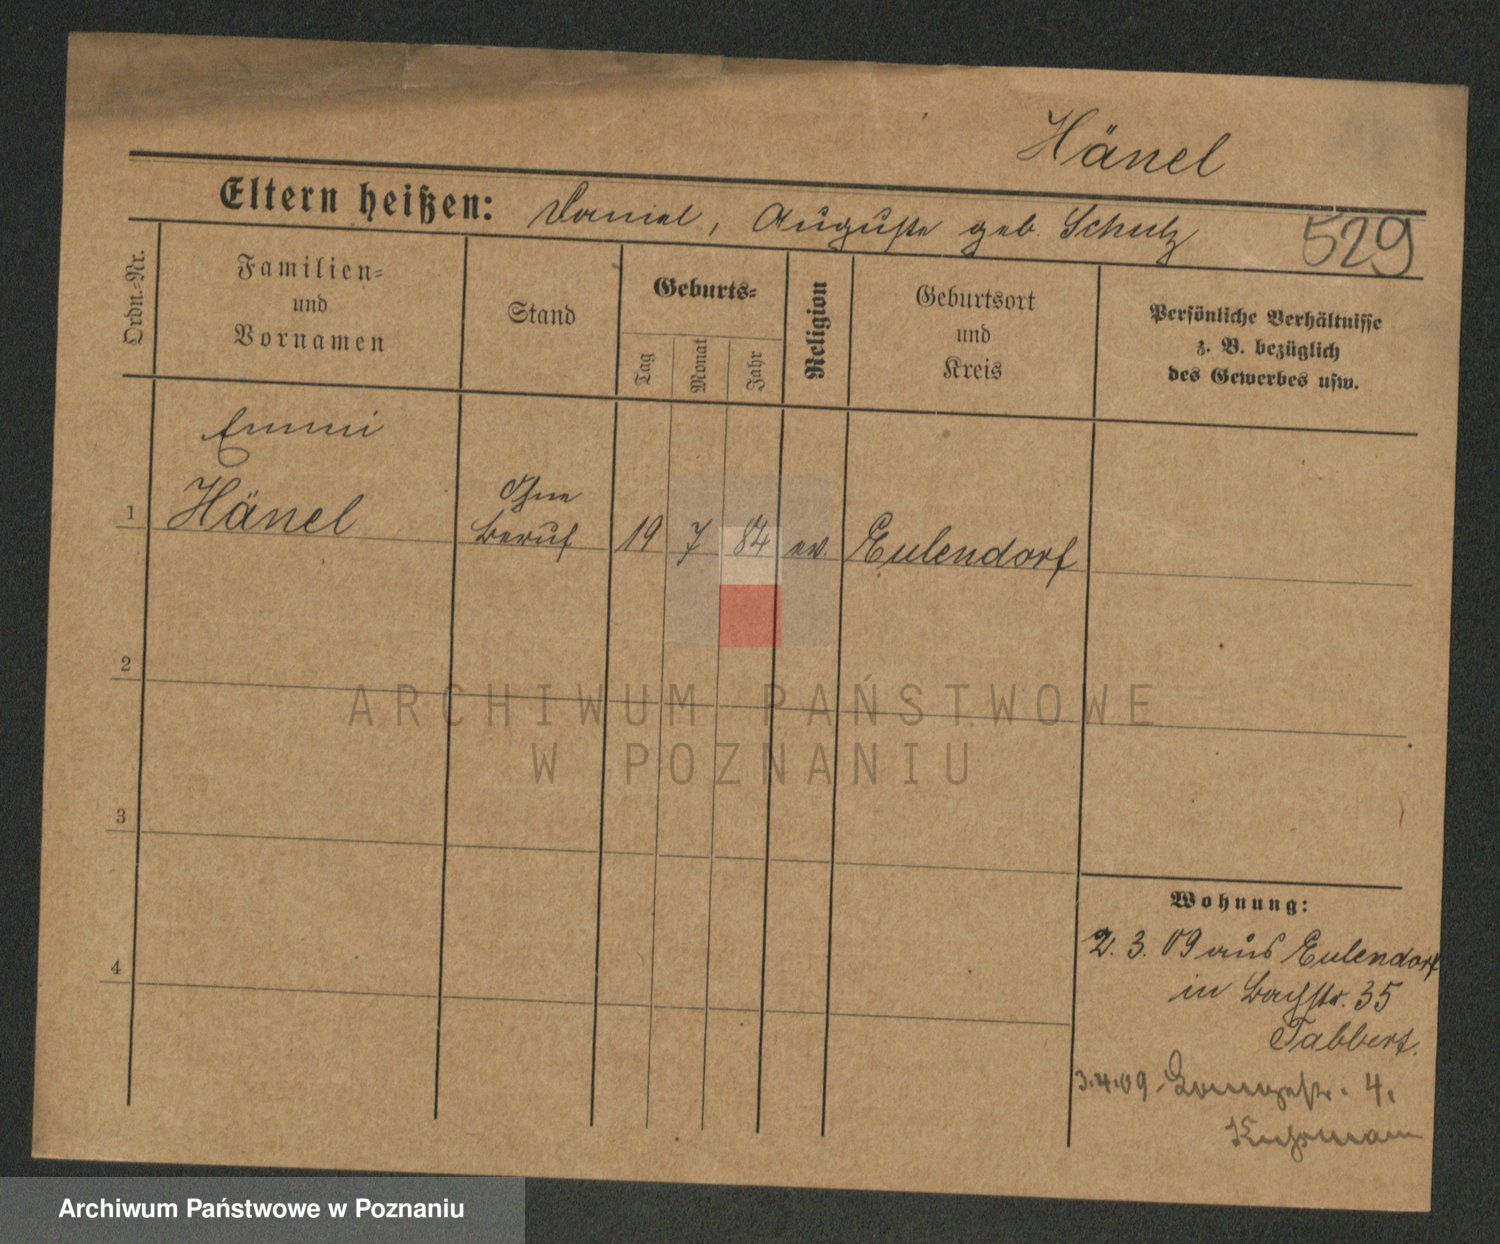 Hänel
Eltern heißen: Daniel, Auguste geb. Schulz
529
Ordn.-Nr.
Familien-
und
Vornamen
Stand
Geburts-
Tag
Monat
Jahr
Religion
Geburtsort
und
Kreis
Persönliche Verhältnisse
z. B. bezüglich
des Gewerbes usw.
Emmi
1 Hänel
Ohne
Beruf
19 7 84 ev. Eulendorf
2
3
4
ARCHIWUM PAŃSTWOWE
W POZNANIU
Wohnung:
2. 3. 09 aus Eulendorf
in Bachstr. 35
Tabbert.
3.4.09 4.
Archiwum Państwowe w Poznaniu